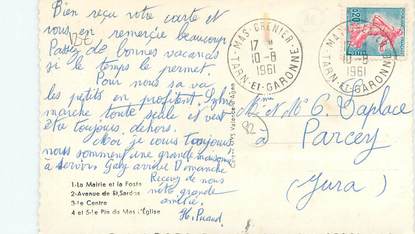 Bien reçu votre carte et
vous en remercie beaucoup
Passez de bonnes vacances
si le temps le permet.
Pour nous sa va
les petits en profitent. Sylvie
marche toute seule et veut
être toujours dehors.
Moi je cours toujours
nous somment une grande maison
à servir. Guy arrive Dimanche
Recevez de nous
notre grande
amitié
H. Picard
1-La Mairie et la Poste
2-Avenue de St.Sardos
3-Le Centre
4 et 5-Le Pin du Mas L'Église
MAS-GRENIER
17 H
10-8
1961
TARN-ET-GARONNE
MAS-GRENIER
10-8
1961
TARN-ET-GARONNE
0,20
et Mr G. Daplace
Parcey
(Jura)
82